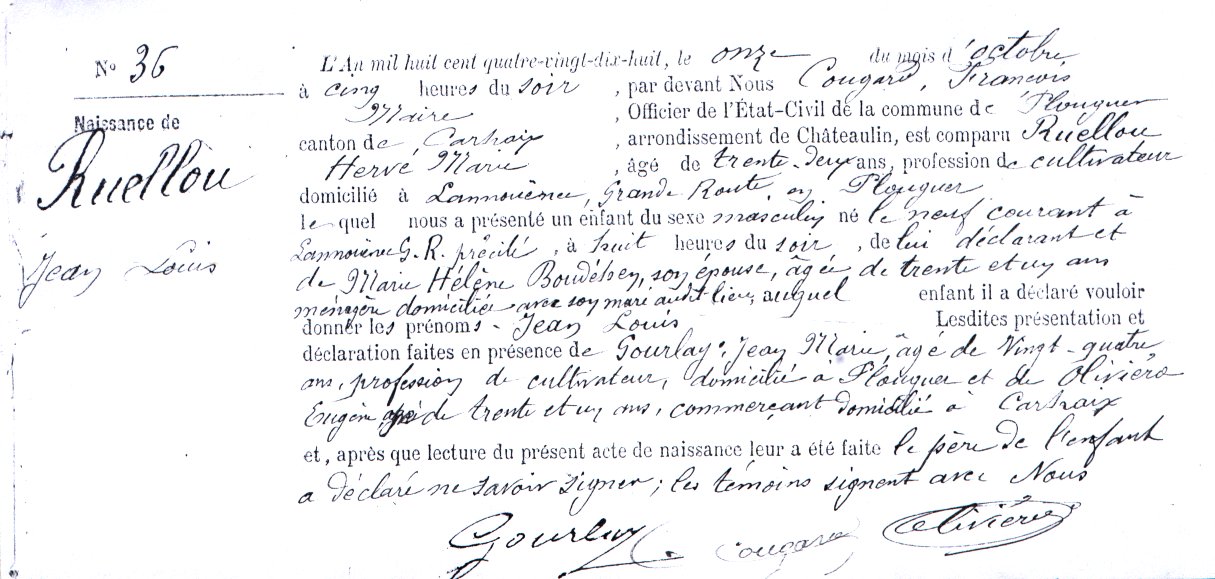 N° 36
Naissance de
Ruellou
Jean Louis
L'An mil huit cent quatre-vingt-dix-huit, le onze du mois d'octobre
à cinq heures du soir, par devant Nous Cougard, François
Maire, Officier de l'État-Civil de la commune de Plouguer
canton de Carhaix, arrondissement de Châteaulin, est comparu Ruellou
Hervé Marie, âgé de trente-deux ans, profession de cultivateur
domicilié à Lannouënec, Grande Route, en Plouguer
lequel nous a présenté un enfant du sexe masculin né le neuf courant à
Lannouënec G. R. précité, à huit heures du soir, de lui déclarant et
de Marie Hélène son épouse, âgée de trente et un ans
ménagère domiciliée avec son mari audit lieu, auquel enfant il a déclaré vouloir
donner les prénoms - Jean Louis Lesdites présentation et
déclaration faites en présence de Gourlay, Jean Marie, âgé de Vingt-quatre
ans, profession de cultivateur, domicilié à Plouguer et de Oliviéro
Eugène, âgé de trente et un ans, commerçant domicilié à Carhaix
et, après que lecture du présent acte de naissance leur a été faite le père de l'enfant
a déclaré ne savoir signer ; les témoins signent avec Nous
Gourlay Cougard Oliviéro